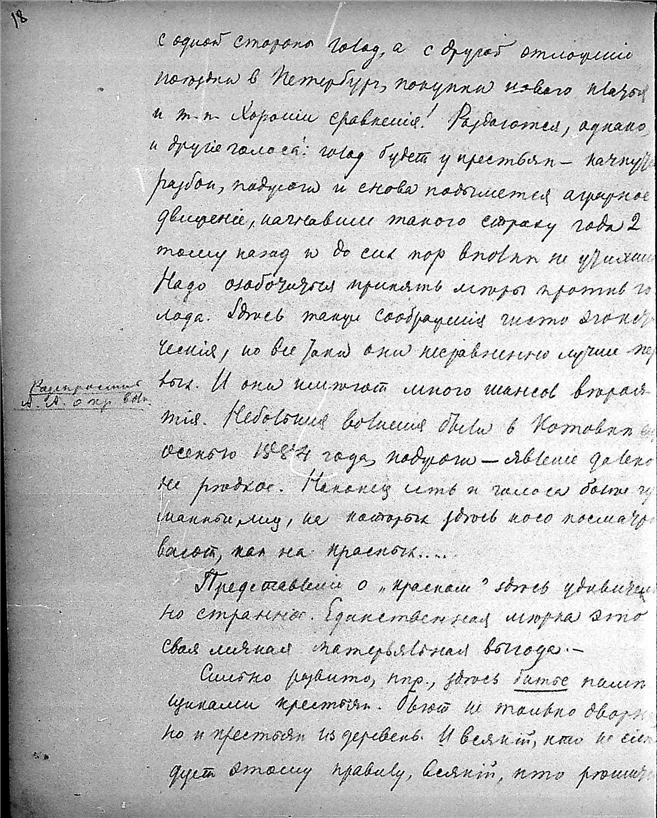 18
с одной стороны голод, а с другой отмощеніи
поездки в Петербург, покупки новаго платья
и т.п. Хорошіи сравненія! Раздаются, однако,
и другіе голоса: голод будет у крестьян – начнутся
разбои, поджоги и снова подымется аграрное
движеніе, нагнавшее такого страху года 2
тому назад и до сих пор вполне не утихшее
Надо озаботиться принять меры против го
лода. Здесь такие соображенія чисто эгоисти
ческія, но все таки они несравненно лучше пер
вых. И они имеют много шансов вероя
тія. Небольшія волненія были в Котовке
осенью 1884 года, поджоги – явленіе далеко
не редкое. Наконец есть и голоса более гу
манных лиц, на которых здесь косо посматри
вают, как на красных....
Представленіе о „красном" здесь удивитель
но странное. Единственная мерка это
своя личная матерьяльная выгода. –
Сильно развито, нпр., здесь битье поме
щиками крестьян. Бьют не только дворню
но и крестьян из деревень. И всякій, кто не сле
дует этому правилу, всякій, кто решит
А. И. о пр. вол.